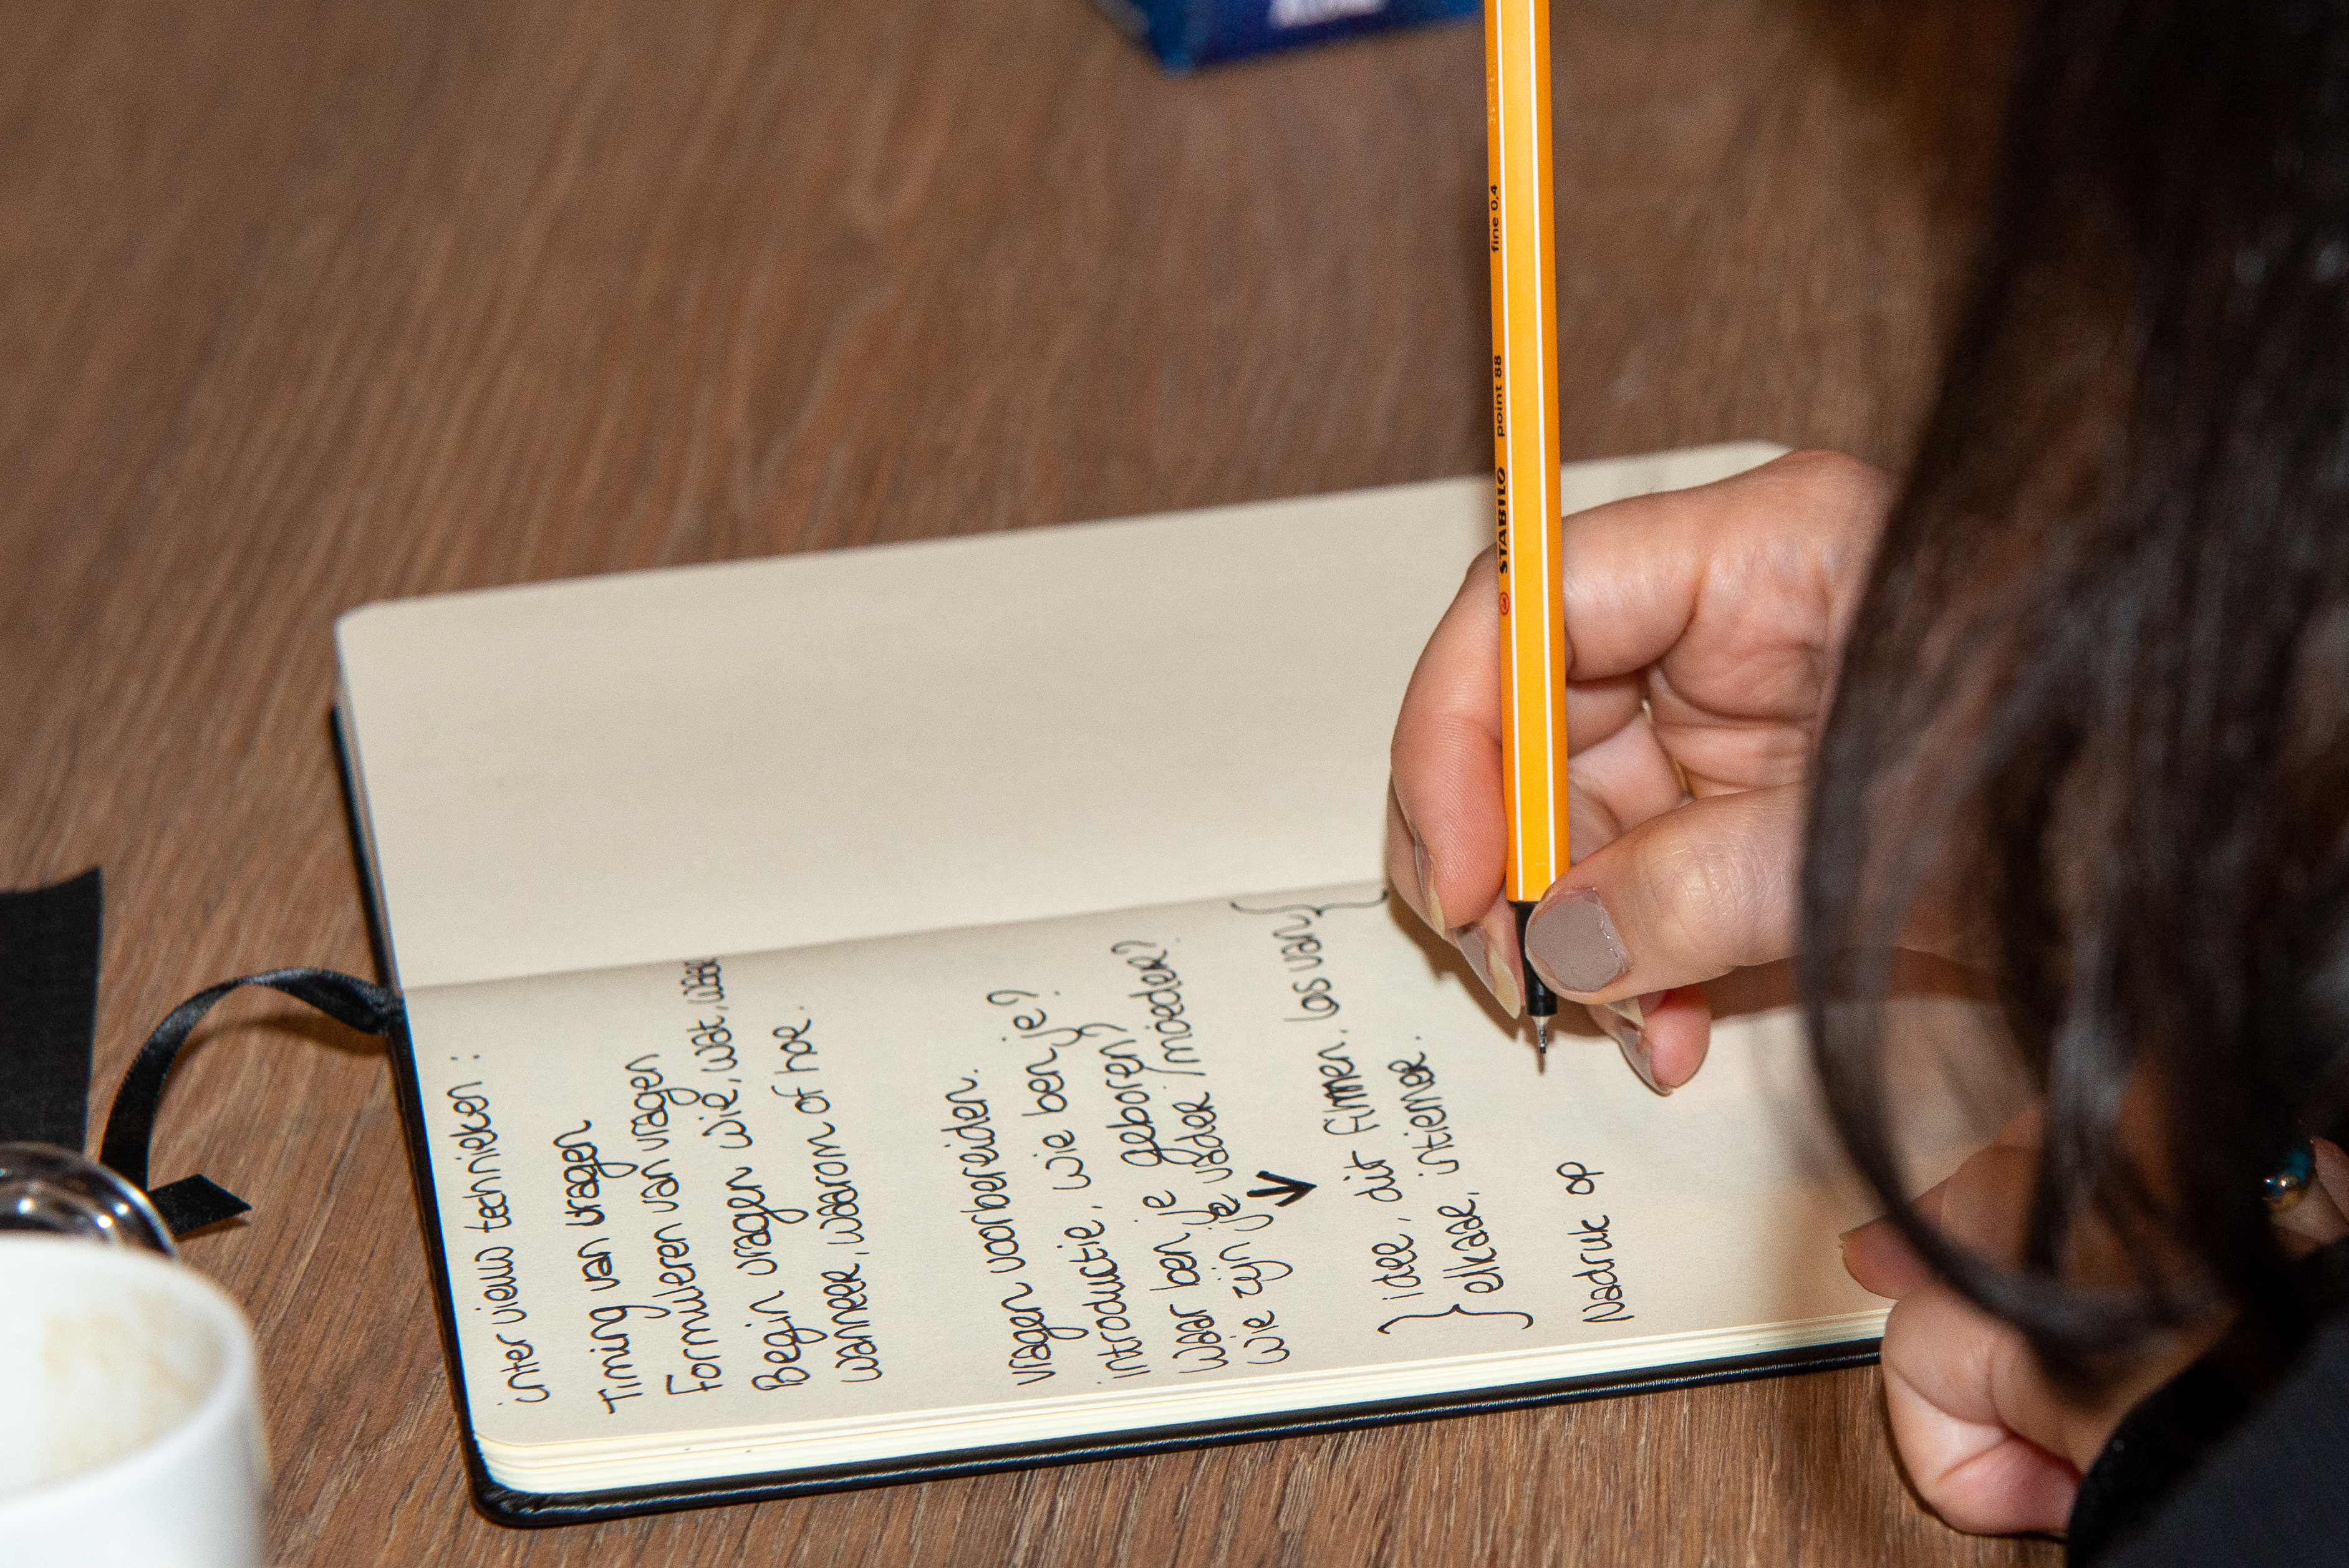 inter view technieken :
Timing van vragen
Formuleren van vragen
Begin vragen wie, wat, waar
wanneer, waarom of hoe.
vragen voorbereiden.
introductie, wie ben je?
waar ben je geboren?
wie zijn je vader / moeder?
idee, dit filmen. los van
elkaar, intiemer.
Nadruk op
STABILO point 88 fine 0,4